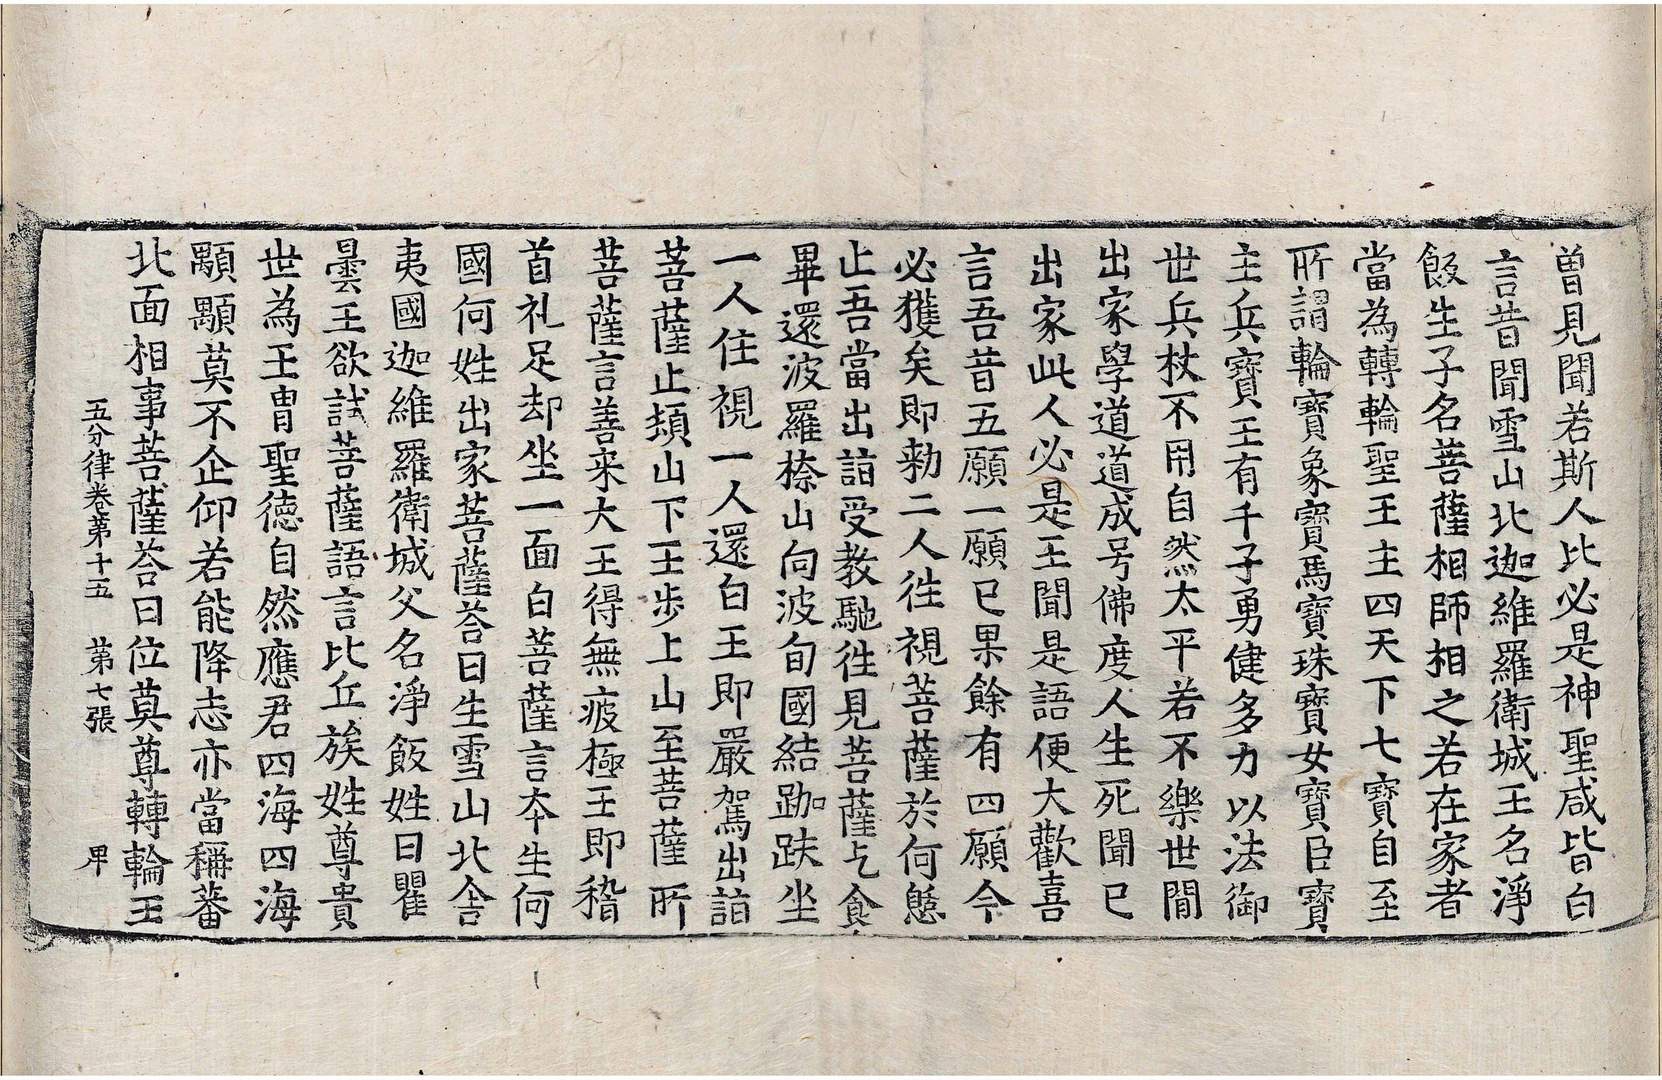 曽見聞若斯人比必是神聖咸皆白
言昔聞雪山北迦維羅衛城王名淨
飯生子名菩薩相師相之若在家者
當為轉輪聖王王主四天下七寶自至
所謂輪寶象寶馬寶珠寶女寶臣寶
主兵寶王有千子勇健多力以法御
世兵杖不用自然太平若不樂世閒
出家學道道成号佛度人生死聞已
出家此人必是王聞是語便大歡喜
言吾昔五願一願已果餘有四願今
必獲矣即勑二人往視菩薩於何憇
止吾當出詣受教馳往見菩薩乞食
畢還波羅㮈山向波旬國結跏趺坐
一人住視一人還白王即嚴駕出詣
菩薩止頍山下王步上山至菩薩所
菩薩言善来大王得無疲極王即稽
首礼足却坐一面白菩薩言本生何
國何姓出家菩薩荅曰生雪山北舎
夷國迦維羅衛城父名淨飯姓曰瞿
曇王欲試菩薩語言比丘族姓尊貴
世為王胄聖徳自然應君四海四海
顒顒莫不企仰若能降志亦當稱蕃
北面相事菩薩荅曰位莫尊轉輪王
五分律卷第十五 第七張 甲